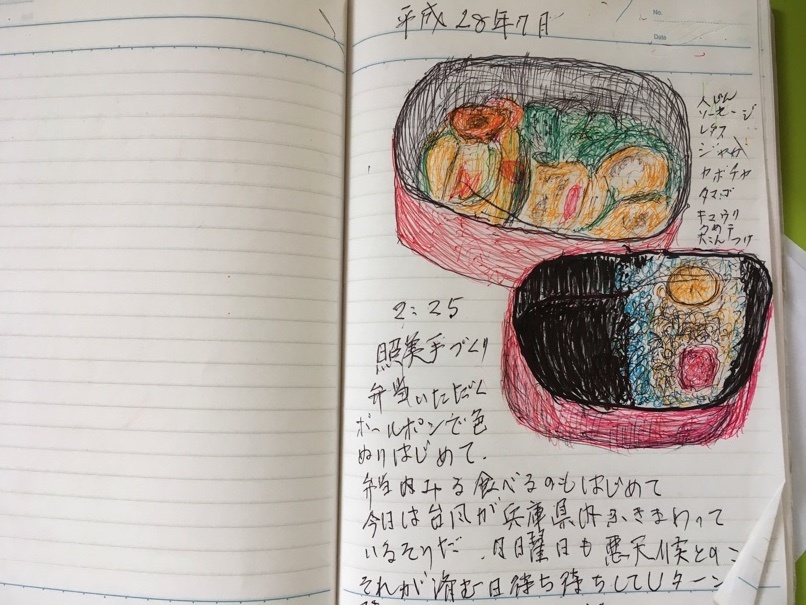 平成28年7月
No.
Date
人じん
ソーセージ
レタス
ジャガ
カボチャ
タマゴ
キュウリ
つけ
2:25
照美手づくり
弁当いただく
ボールポンで色
ぬりはじめて.
弁当内みる食べるのもはじめて
今日は台風が兵庫県内ふきまわって
いるそうだ.月日曜日も悪天候との
それが済む日待ち待ちしてUターン